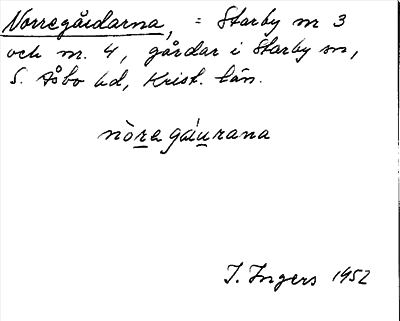 Norregårdarna, = Starby nr 3
och nr. 4, gårdar i Starby sn,
S. Åsbo hd, Krist. län.
nòregáurana
I. Ingers 1952